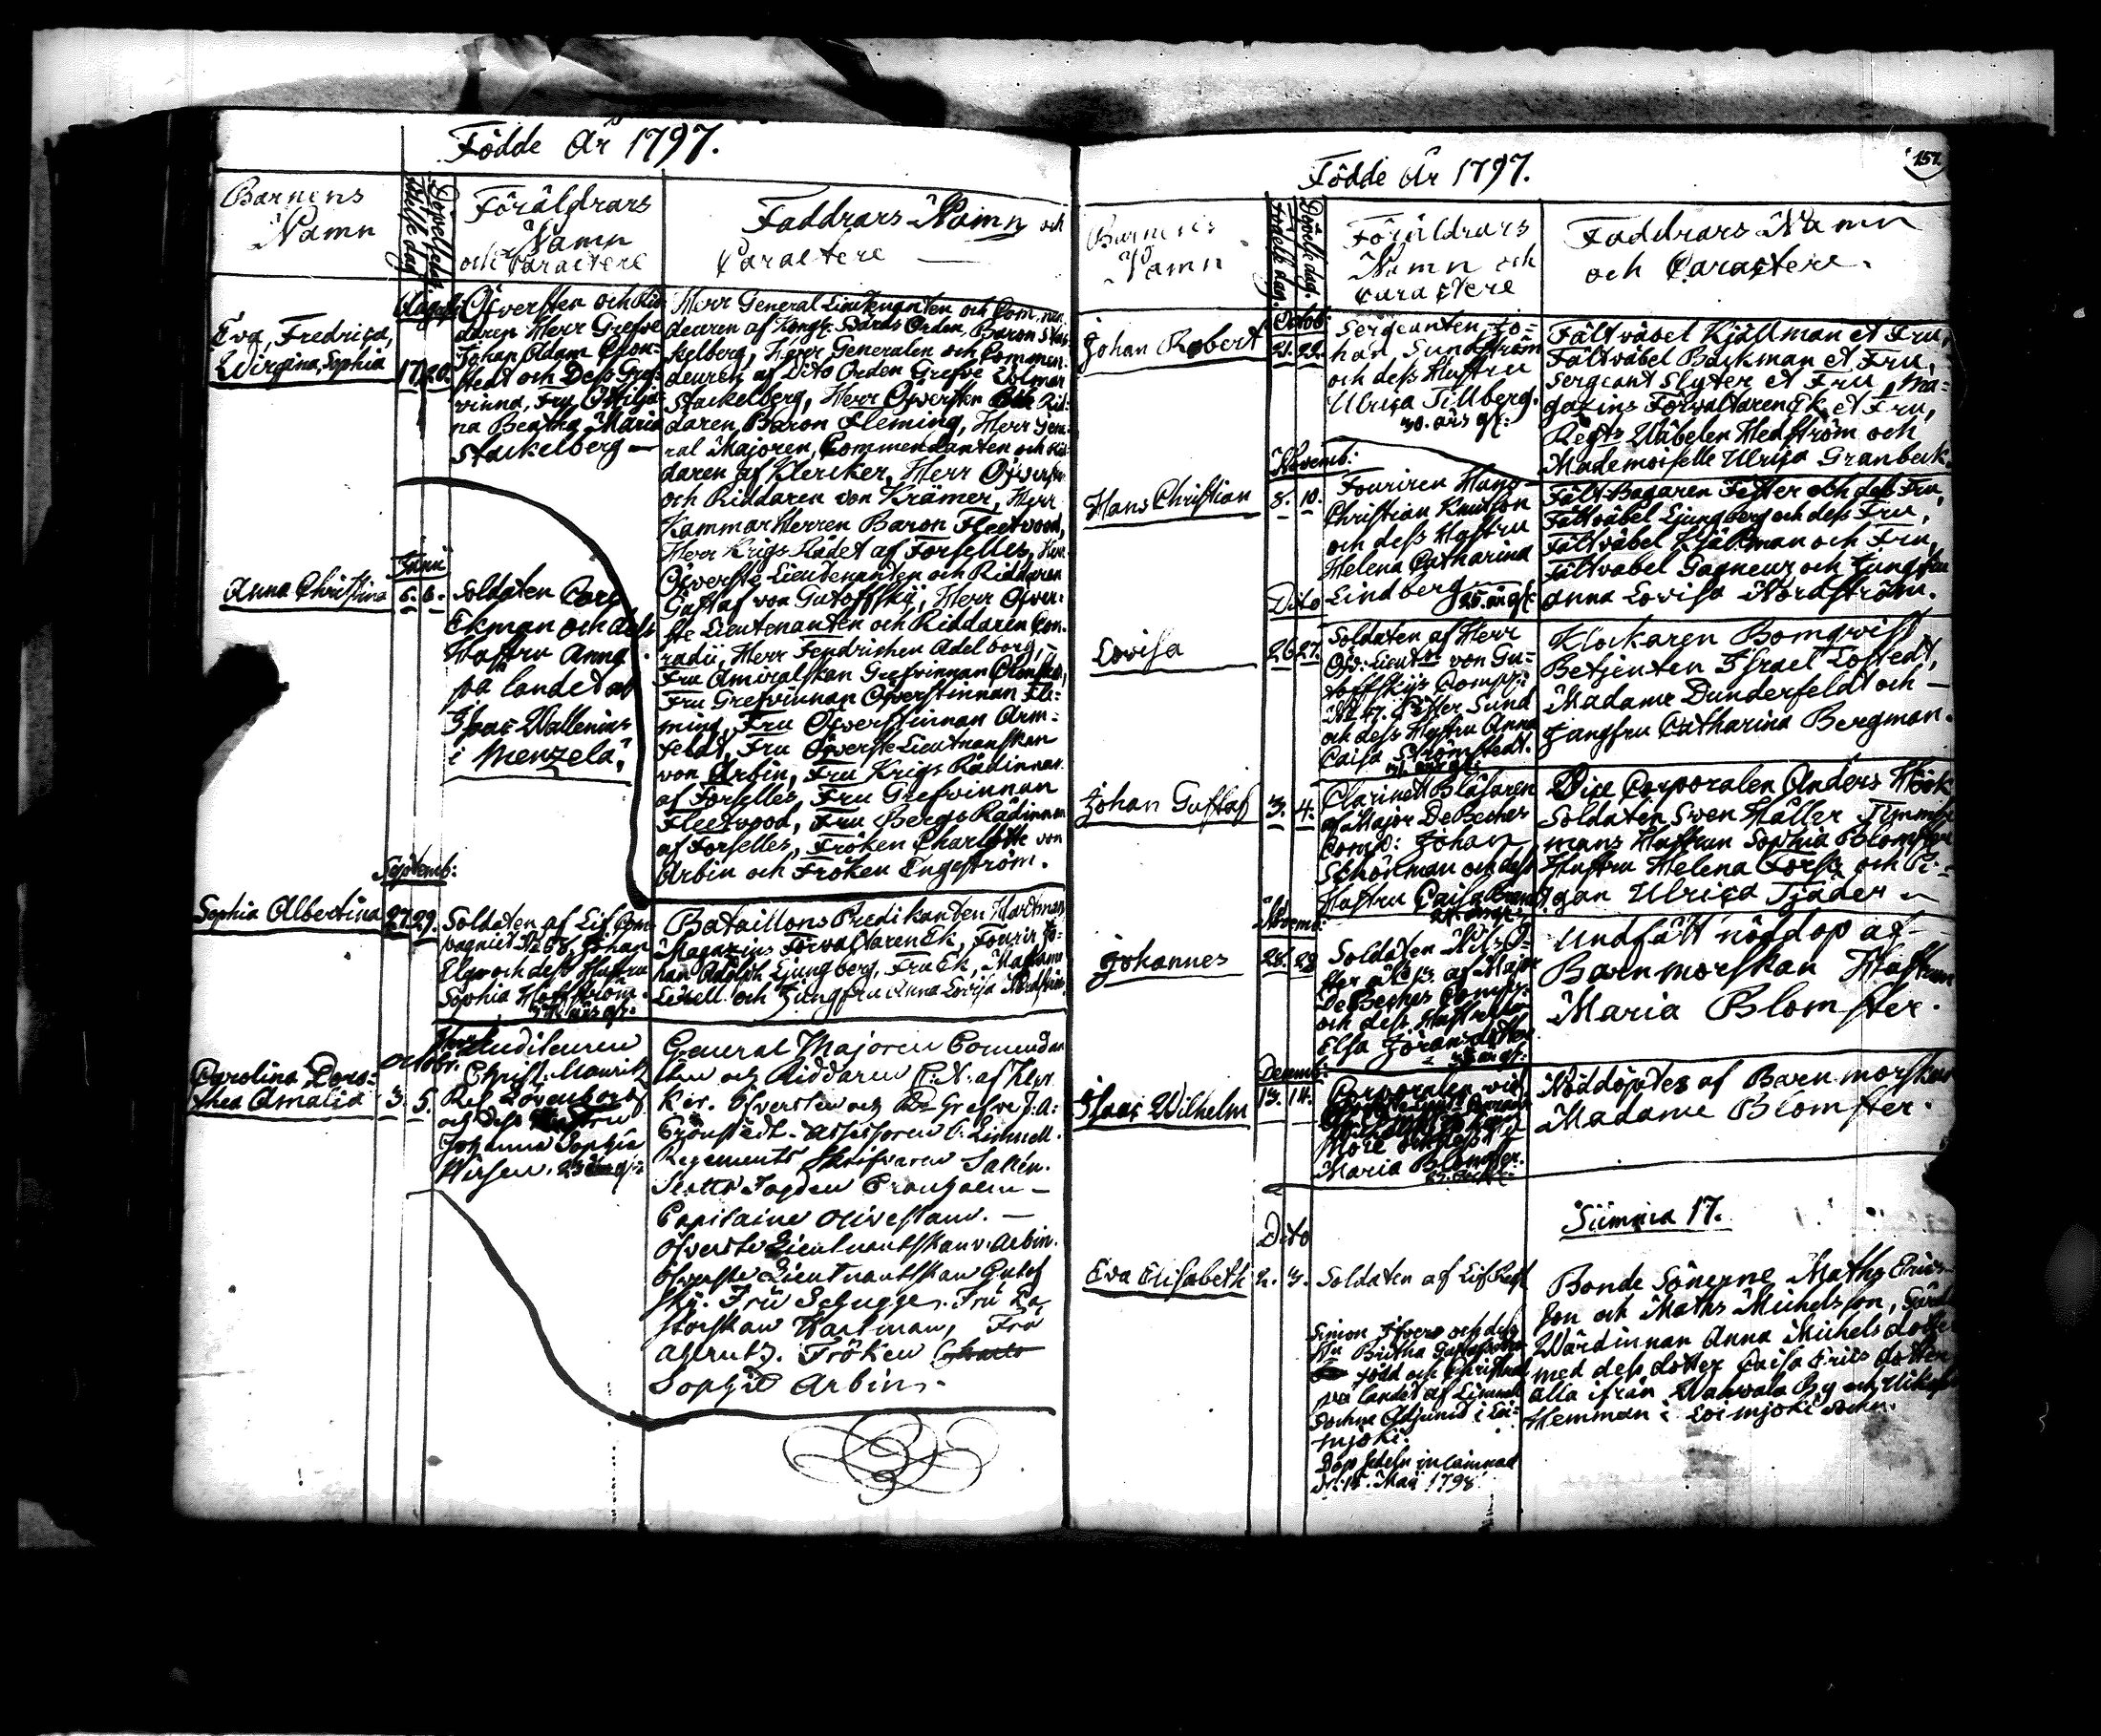 Födde År 1797.
Barnens
Namn
Föräldrars
Namn
och Caractere
Faddrars Namn och
Caractere
August:
Eva, Fredrica,
Wirgina, Sophia
17. 20.
Öfversten och Rid
daren Herr Grefve
Johan Adam Cron-
stedt och Dess Gref-
vinna, Fru
na Beatha Maria
Stackelberg
Herr General Lieutenanten och Com men
deuren af Kongl: Svärds Orden, Baron Stac
kelberg, Herr Generalen och Commen-
deuren af Dito Orden Grefve Volmar
Stackelberg, Herr Öfversten och Rid-
daren Baron Fleming, Herr Gene-
ral Majoren, Commendanten och Rid
daren af Klercker, Herr Öfversten
och Riddaren von Krämer, Herr
Kammar Herren Baron Fleetvood,
Herr Krigs Rådet af Forselles, Herr
Öfverste Lieutenanten och Riddaren
Gustaf von Gutoffsky, Herr Öfver-
ste Lieutenanten och Riddaren Con-
radii, Herr Fendrichen Adelborg,
Fru Amiralskan Grefvinnan Cronstedt,
Fru Grefvinnan Öfverstinnan Fle-
ming, Fru Öfverstinnan Arm-
feldt, Fru Öfverste Lieutnanskan
von Arbin, Fru Krigs Rådinnan
af Forselles, Fru Grefvinnan
Fleetwood, Fru Bergs Rådinnan
af Forselles, Fröken Charlotte von
Arbin och Fröken Engeström.
Junii
Anna Christina
6. 6.
Soldaten Carl
Ekman och dess
Hustru Anna
på landet af
Isac Wallenius
i Menzelä,
Septemb:
Sophia Albertina
27. 29.
Soldaten af Lif Com
pagniet No 68. Johan
Elg och dess Hustru
Sophia Hoffström.
Bataillons Predikanten Hartman,
Magazins Förvaltaren Ek, Fourir Jo-
han Adolph Ljungberg, Fru Ek, Madame
Lexell och Jungfru Anna Lovisa Nordström.
Octobr.
Carolina Doro-
thea Amalia
3. 5.
Auditeuren
Christ: Mauritz
och dess Hustru
Johanna Sophia
General Majoren Comendan
ten och Riddaren C: N. af Kler
ker. Öfversten och Rr Grefve J: A:
Crönstedt. Assessoren C. Linnell.
Regements Skrifvaren Salen.
Slotts Fogden Cronholm
Capitaine Olivestam.
Öfverste Lieutnantskan v. Arbin.
Öfverste Lieutnantskan Gutof
sky. Fru Schugge. Fru Pa
storskan Hartman, Fru
Ahlrutz. Fröken
Sophie Arbin.
Födde År 1797.
157.
Barnens
Namn
Födelse dag.
Döpelse dag.
Föräldrars
Namn och
Caractere
Faddrars Namn
och Caractere.
Octob:
Johan Robert
21. 22.
Sergeanten Jo-
han Sundström
och dess Hustru
Ulrica Tillberg.
30. års gl:
Fältväbel Kjällman et Fru,
Fältväbel Backman et Fru,
Sergeant Slyter et Fru, Ma-
gazins Förvaltaren Ek et Fru,
Regts Wäbelen Hedström och
Mademoiselle Ulrica Granbeck.
Novemb:
Hans Christian
8. 10.
Fouriren Hans
Christian Knutson
och dess Hustru
Helena Catharina
Lindberg
Fält Bagaren Fetter och dess Fru,
Fältväbel Ljungberg och dess Fru,
Fältväbel Kjällman och Fru,
Fältväbel Gagneur och Jungfru
Anna Lovisa Nordström.
Dito
Lovisa
26 27.
Soldaten af Herr
Öfv: Lieutnt von Gu-
toffskys Comp:
No 47. Petter Sund
och dess Hustru Anna
Caisa Strömstedt.
Klockaren Bomqvist
Betjenten Israel Löfstedt,
Madame Dunderfeldt och
Jungfru Catharina Bergman.
Johan Gustaf
3. 4.
Clarinett Blåsaren
af Major De Beches
Comp: Johan
Schörman och dess
Hustru Caisa
Vice Corporalen Anders Höök
Soldaten Sven Häller Timmer
mans Hustrun Sophia Blomster
Hustru Helena och Pi-
gan Ulrica Tjäder
Novemb:
Johannes
28. 29
Soldaten Nils Ö-
ster No 13. af Major
De Beches Comp:
och dess Hustru
Elsa Jöransdotter
Undfått nöddop af
Barnmorskan Hustrun
Maria Blomster.
Decemb:
Isaac Wilhelm
13. 14.
Corporalen vid
More och dess
Maria Blomster.
Nöddöptes af Barnmorskan
Madame Blomster.
Summa 17.
Dito
Eva Elisabeth
2. 3.
Soldaten af Lif Regt
Simon Ifvers och dess
Hu Britha Gustafsdotter
född och Christnad
på landet af Limnell
Sockne Adjunct i Loi-
mjoki.
Dop sedeln inlämnad
d: 15. Maii 1798.
Bonde Sönerne Mathz Erics-
son och Maths Michelsson, Gård
Wärdinnan Anna Michelsdotter
med dess dotter Caisa Ericsdotter,
alla ifrån By och
Hemman i Loimjoki Sockn.